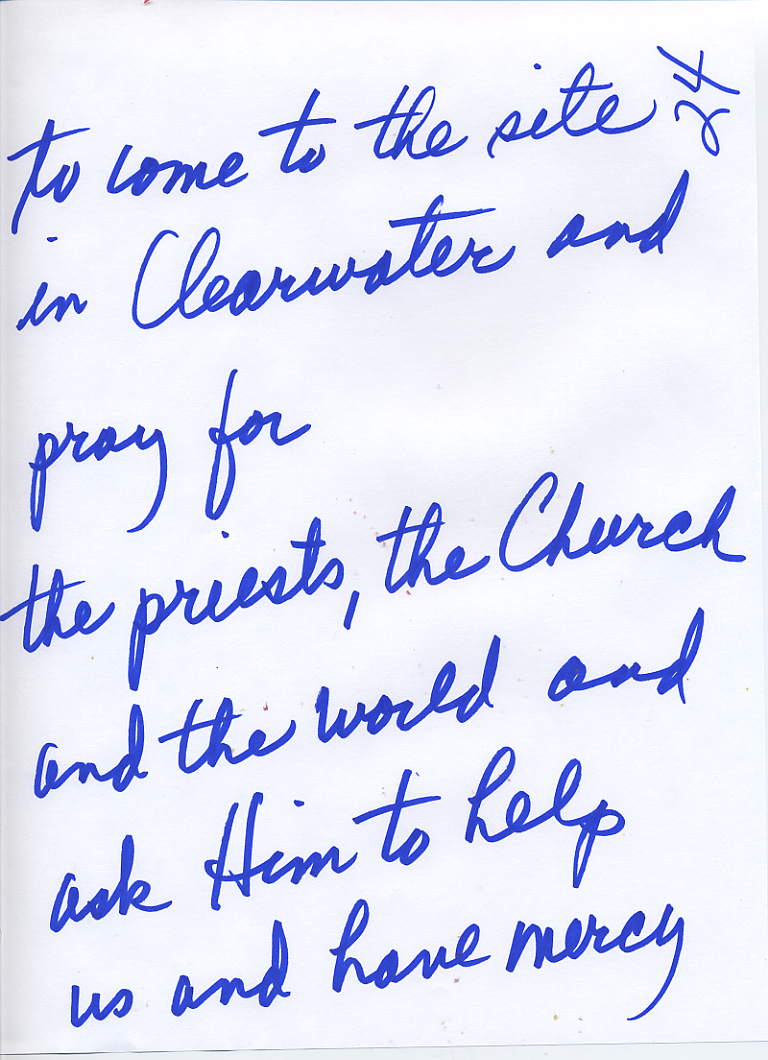 24
to come to the site
in Clearwater and
pray for
the priests, the Church
and the world and
ask Him to help
us and have mercy